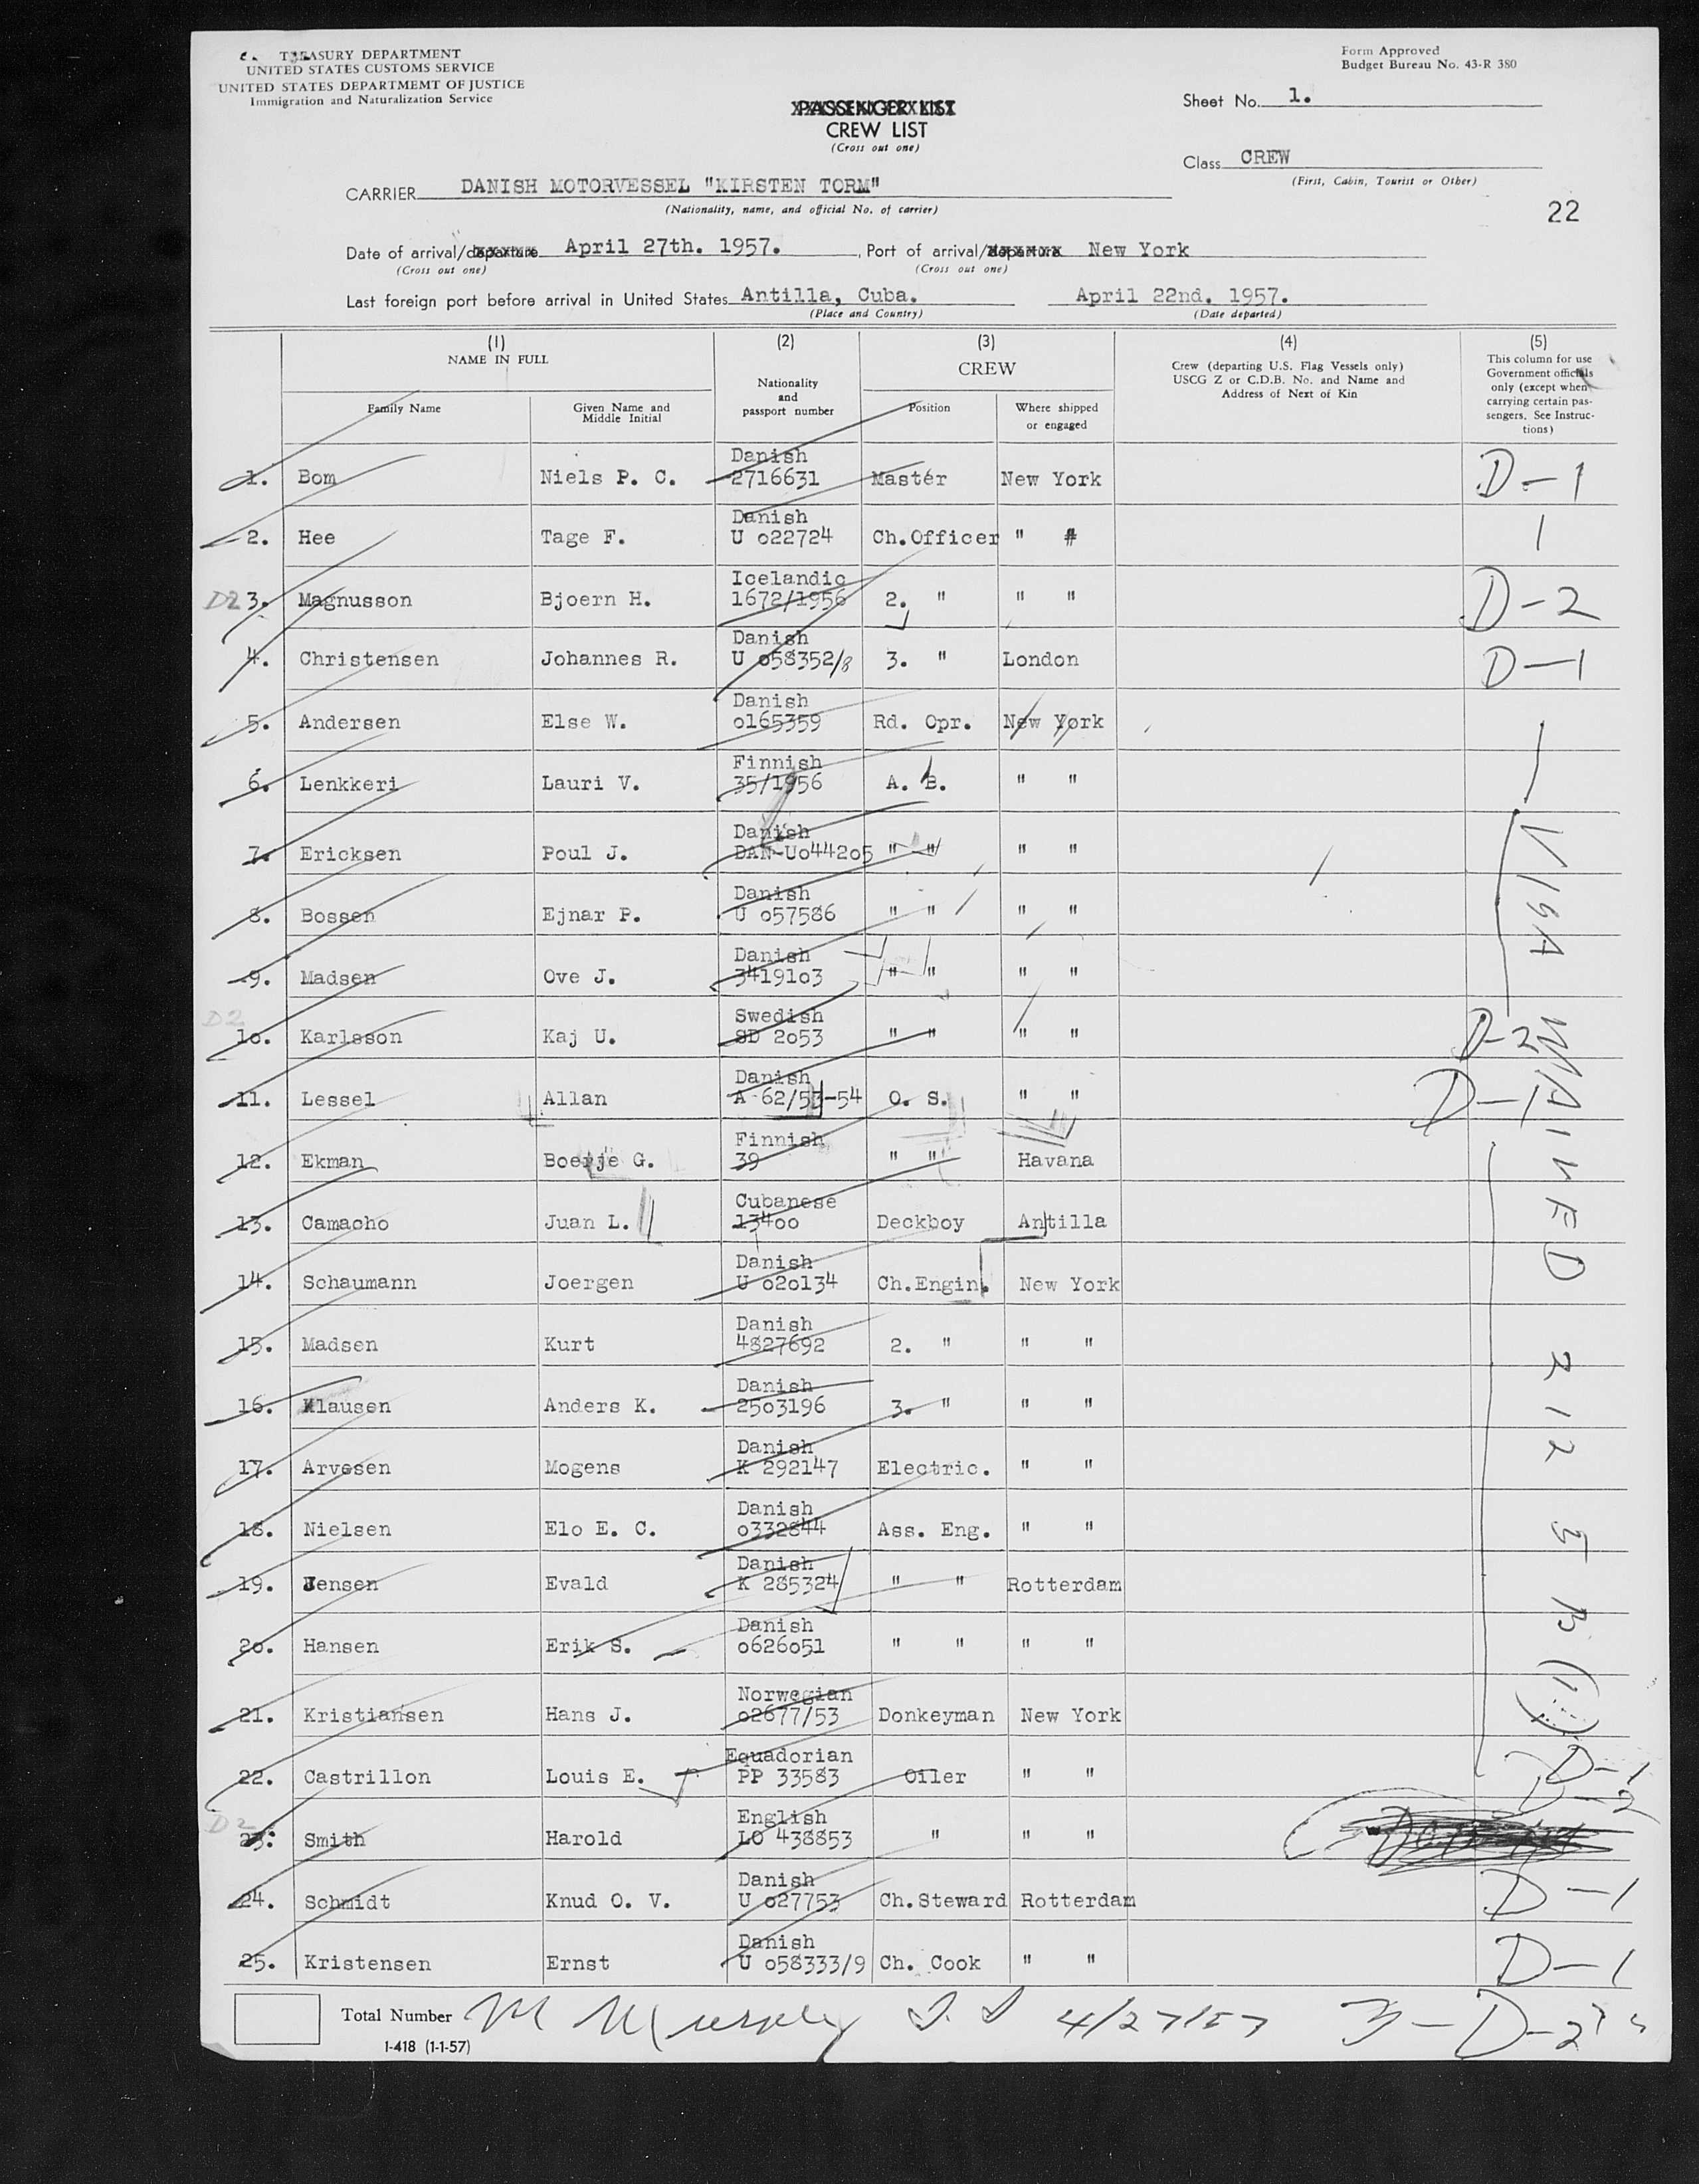 TREASURY DEPARTMENT
UNITED STATES CUSTOMS SERVICE
UNITED STATES DEPARTMEMT OF JUSTICE
Immigration and Naturalization Service
Form Approved
Budget Bureau No. 43-R 380
PASSENGER LIST
CREW LIST
(Cross out one)
Sheet No. 1.
Class CREW
(First, Cabin, Tourist or Other)
CARRIER DANISH MOTORVESSEL "KIRSTEN TORM"
(Nationality, name, and official No. of carrier)
22
Date of arrival/departure April 27th. 1957. , Port of arrival/departure New York
(Cross out one) (Cross out one)
Last foreign port before arrival in United States Antilla, Cuba. April 22nd. 1957.
(Place and Country) (Date departed)
(1) NAME IN FULL
Family Name
Given Name and Middle Initial
(2) Nationality and passport number
(3) CREW
Position
Where shipped or engaged
(4) Crew (departing U.S. Flag Vessels only) USCG Z or C.D.B. No. and Name and Address of Next of Kin
(5) This column for use Government officials only (except when carrying certain passengers. See Instructions)
1. Bom Niels P. C. Danish 2716631 Master New York D-1
2. Hee Tage F. Danish U o22724 Ch.Officer " # 1
D2 3. Magnusson Bjoern H. Icelandic 1672/1956 2. " " " D-2
4. Christensen Johannes R. Danish U o58352/8 3. " London D-1
5. Andersen Else W. Danish o165359 Rd. Opr. New York
6. Lenkkeri Lauri V. Finnish 35/1956 A. B. " "
7. Ericksen Poul J. Danish DAN-Uo442o5 " " " "
8. Bossen Ejnar P. Danish U o57586 " " " "
9. Madsen Ove J. Danish 34191o3 " " " "
D2 1o. Karlsson Kaj U. Swedish SD 2o53 " " " " D-2
11. Lessel Allan Danish A 62/53-54 O. S. " " D-1
12. Ekman Boerje G. Finnish 39 " " Havana
13. Camacho Juan L. Cubanese 134oo Deckboy Antilla
14. Schaumann Joergen Danish U o2o134 Ch.Engin. New York
15. Madsen Kurt Danish 4827692 2. " " "
16. Klausen Anders K. Danish 25o3196 3. " " "
17. Arvesen Mogens Danish K 292147 Electric. " "
18. Nielsen Elo E. C. Danish o332844 Ass. Eng. " "
19. Jensen Evald Danish K 285324 " " Rotterdam
2o. Hansen Erik S. Danish o626o51 " " " "
21. Kristiansen Hans J. Norwegian o2677/53 Donkeyman New York
22. Castrillon Louis E. Equadorian PP 33583 Oiler " " D-1
D2 23. Smith Harold English LO 438853 " " " D-2
24. Schmidt Knud O. V. Danish U o27753 Ch.Steward Rotterdam D-1
25. Kristensen Ernst Danish U o58333/9 Ch. Cook " " D-1
VISA WAIVED 212
Total Number M Murphy 4/27/57 3-D-2
I-418 (1-1-57)